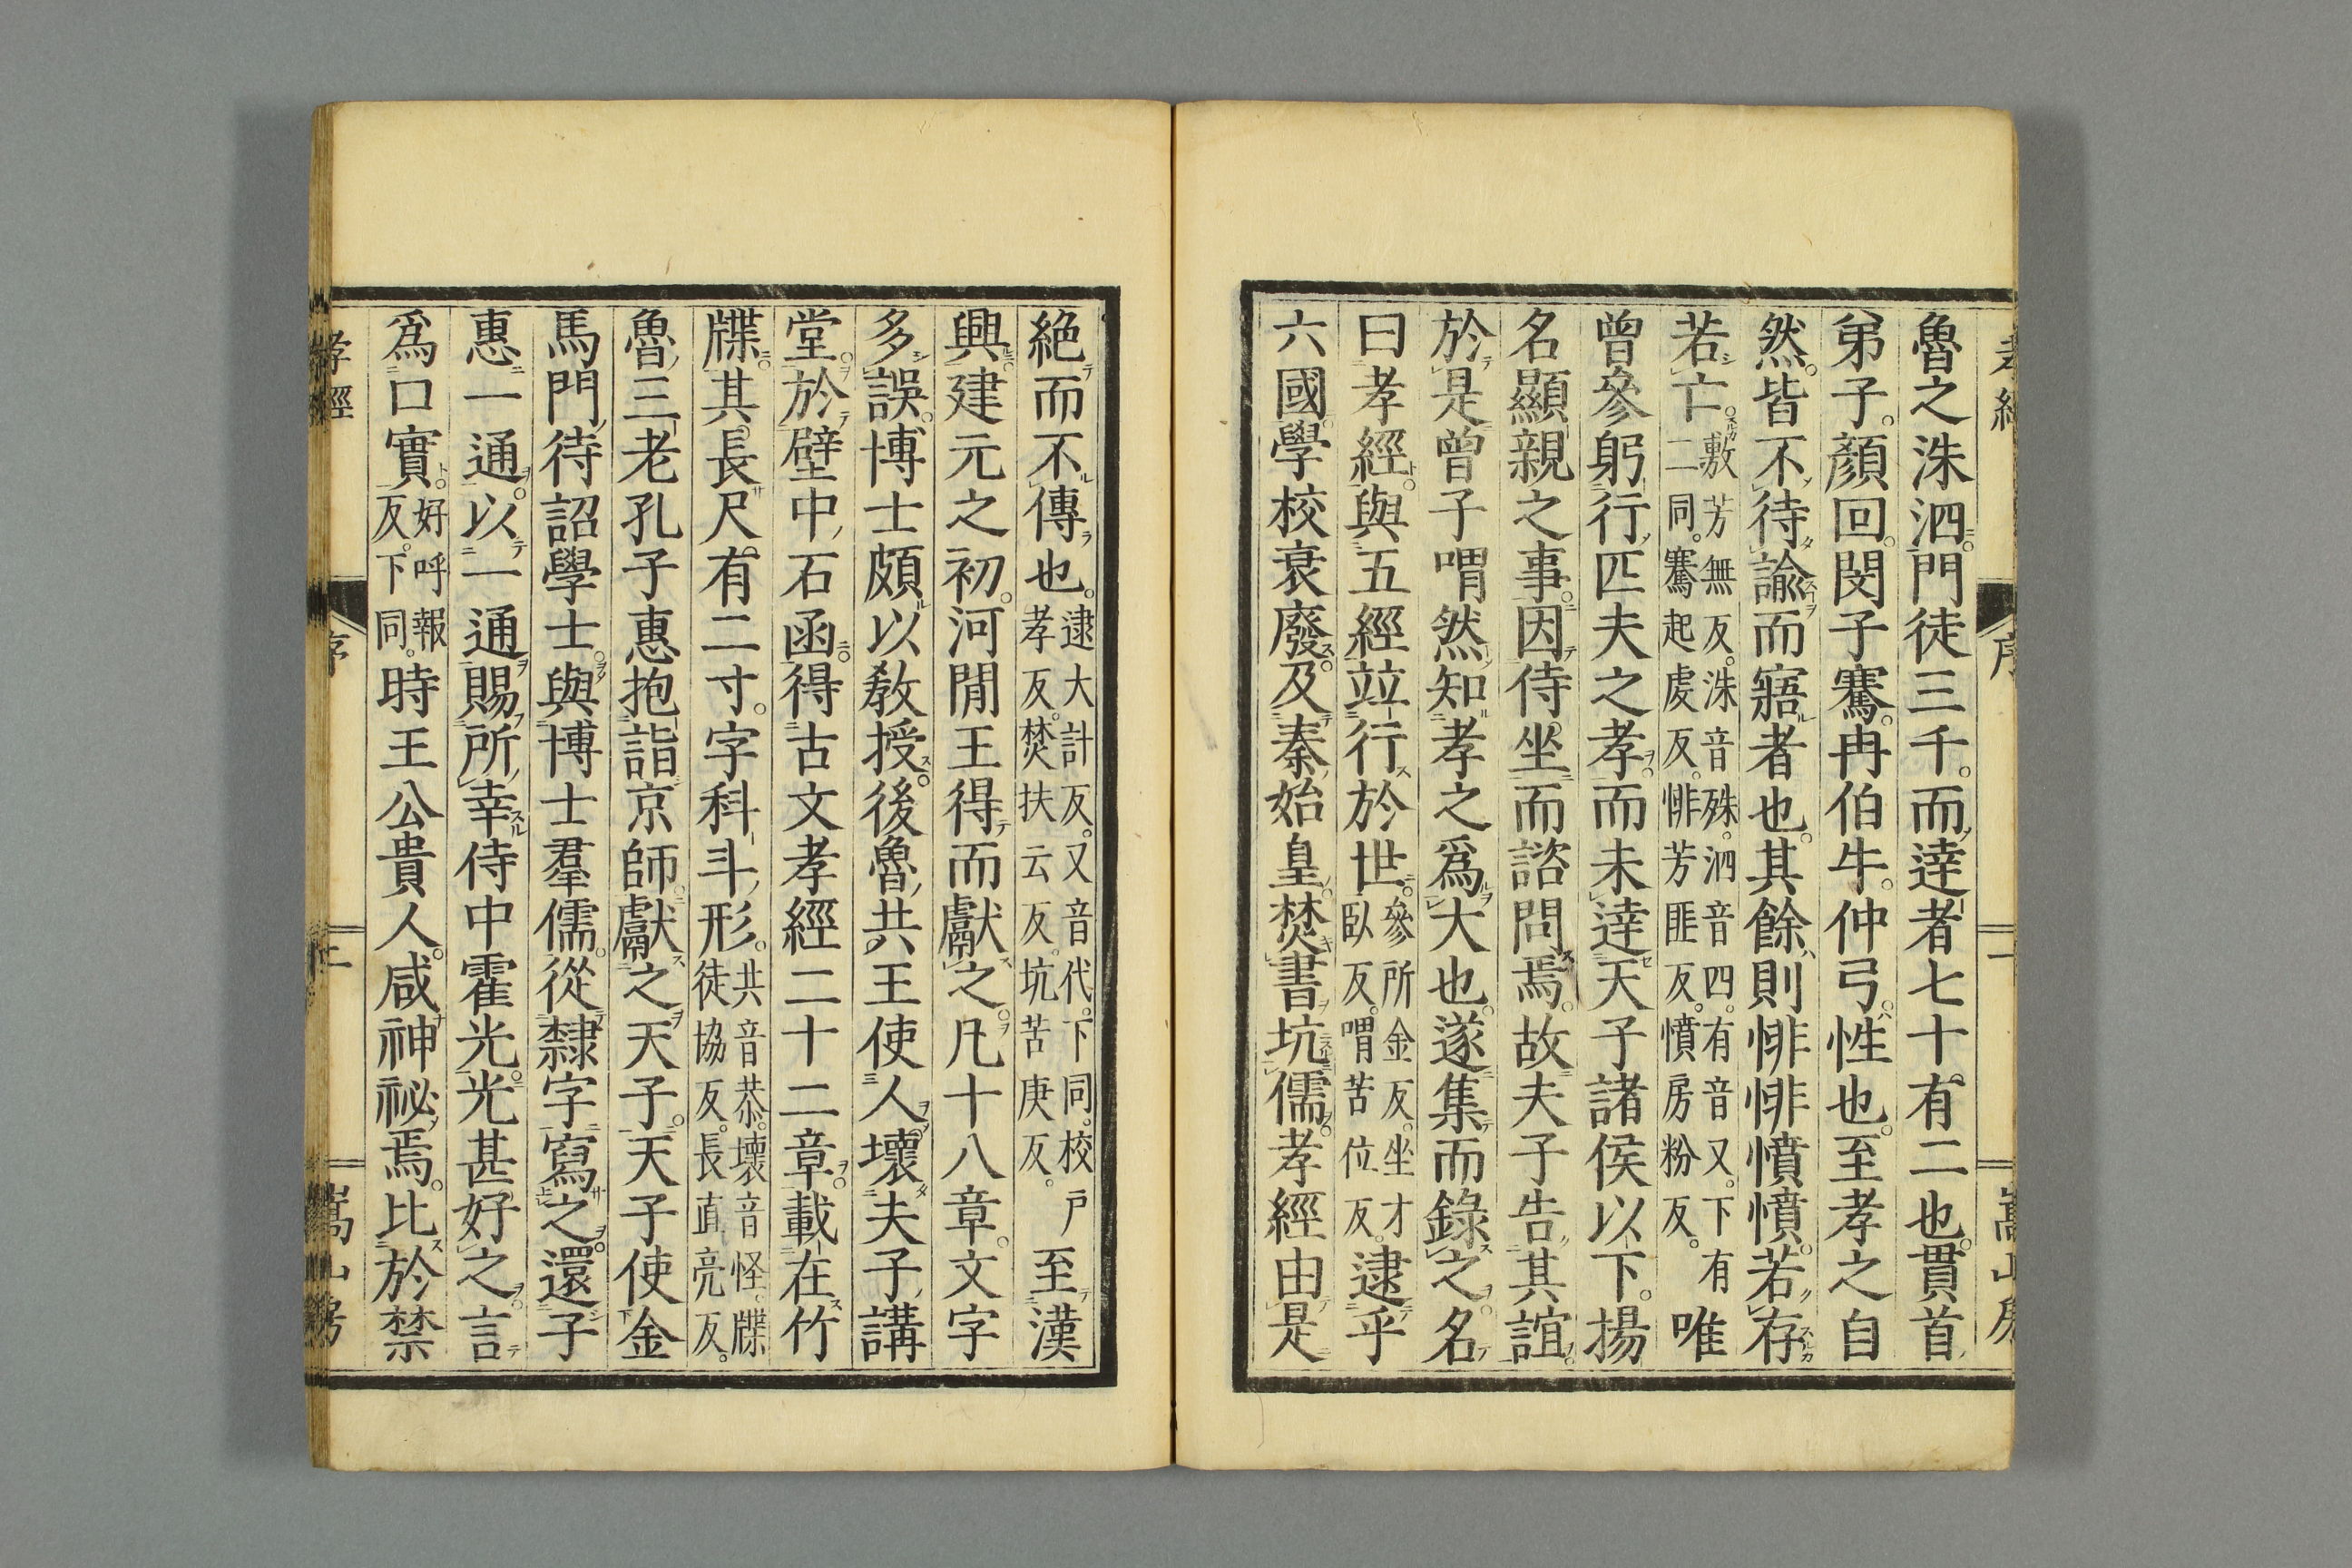 魯之洙泗門徒三千。而達者七十有二也。貫首
弟子。顏回。閔子騫。冉伯牛。仲弓。性也。至孝之自
然。皆不待諭而寤者也。其餘則悱悱憤憤。若存
若亡。敷芳無反。洙音殊。泗音四。有音又。下有二同。騫起虔反。悱芳匪反。憤房粉反。唯
曾參躬行匹夫之孝。而未達天子諸侯以下。揚
名顯親之事。因侍坐而諮問焉。故夫子告其誼。
於是曾子喟然知孝之爲大也。遂集而錄之。名
曰孝經。與五經竝行於世。參所金反。坐才臥反。喟苦位反。逮乎
六國。學校衰廢。及秦始皇。焚書坑儒。孝經由是
絶而不傳也。逮大計反。又音代。下同。校戸孝反。焚扶云反。坑苦庚反。至漢
興。建元之初。河閒王得而獻之。凡十八章。文字
多誤。博士頗以敎授。後魯共王使人壞夫子講
堂。於壁中石函。得古文孝經二十二章。載在竹
牒。其長尺有二寸。字科斗形。共音恭。壞音怪。牒徒協反。長直亮反。
魯三老孔子惠抱詣京師。獻之天子。天子使金
馬門待詔學士。與博士羣儒。從隸字寫之。還子
惠一通。以一通賜所幸侍中霍光。光甚好之。言
爲口實。好呼報反。下同。時王公貴人。咸神祕焉。比於禁
孝經
序
二
嵩山房